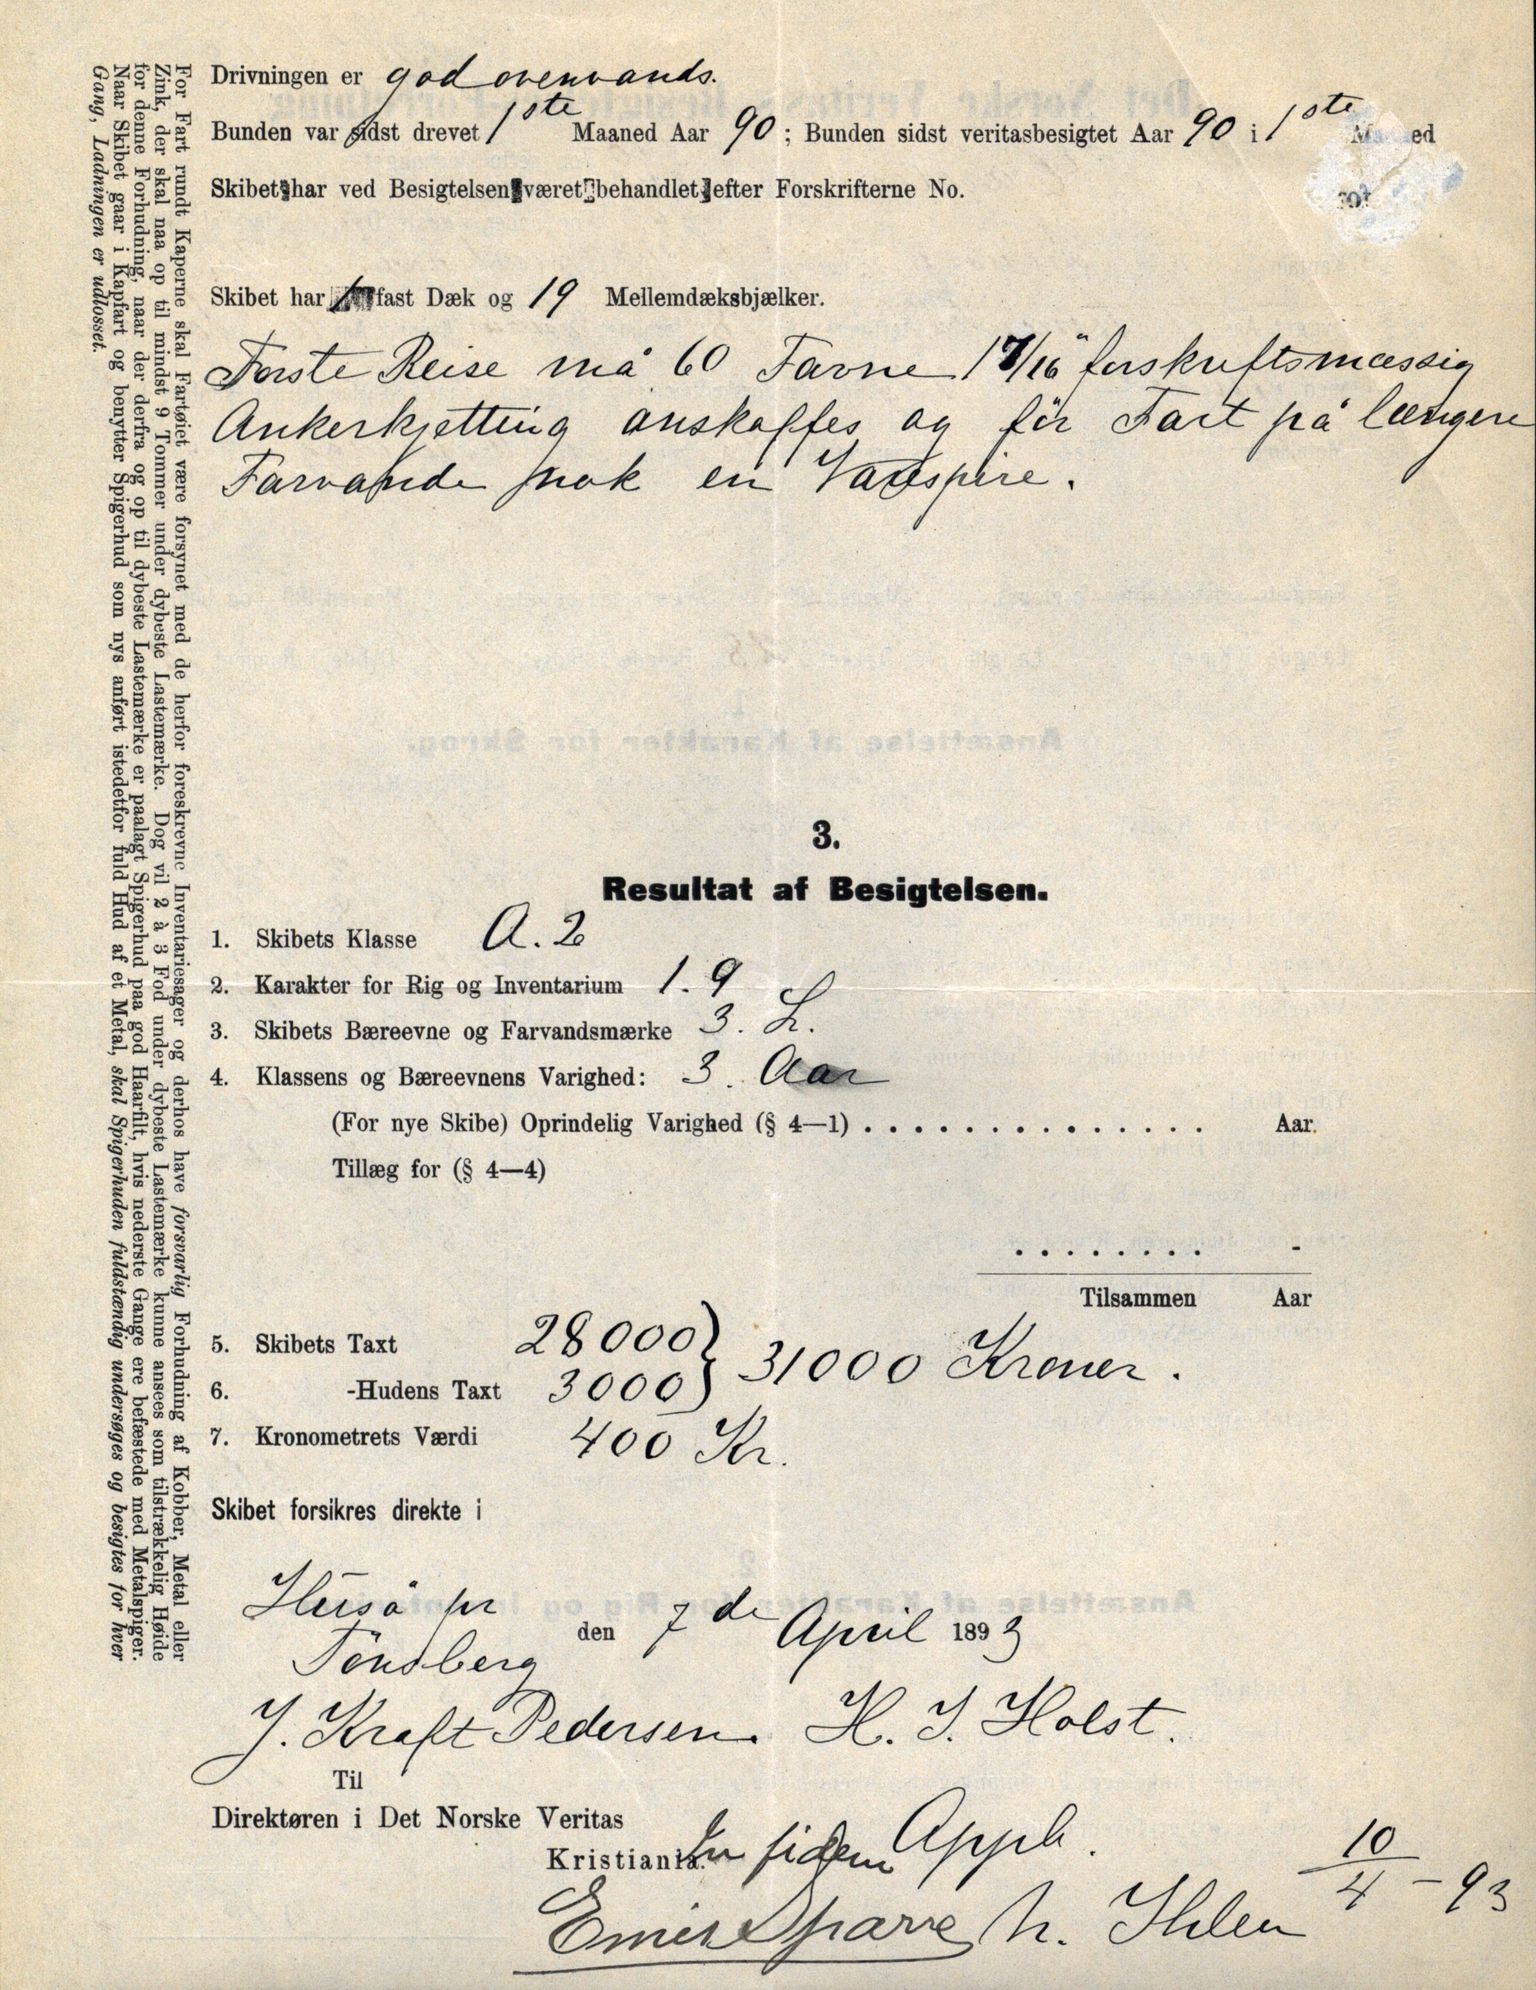 Drivningen er god ovenvands.
Bunden var sidst drevet 1ste Maaned Aar 90; Bunden sidst veritasbesigtet Aar 90 i 1ste Maaned
Skibet har ved Besigtelsen været behandlet efter Forskrifterne No. for
Skibet har 1 fast Dæk og 19 Mellemdæksbjælker.
Første Reise må 60 Favne 1 7/16" forskriftsmæssig
Ankerkjetting anskaffes og för Fart på længere
Farvande nok en Varespire.
3.
Resultat af Besigtelsen.
1. Skibets Klasse A. 2
2. Karakter for Rig og Inventarium 1. 9
3. Skibets Bæreevne og Farvandsmærke 3. L.
4. Klassens og Bæreevnens Varighed: 3. Aar
(For nye Skibe) Oprindelig Varighed (§ 4—1) . . . . . . . . . . . . . . . Aar.
Tillæg for (§ 4—4)
. . . . . . . . -
Tilsammen Aar
5. Skibets Taxt 28000 } 31000 Kroner.
6. -Hudens Taxt 3000
7. Kronometrets Værdi 400 Kr.
Skibet forsikres direkte i
Husö pr
Tönsberg den 7de April 1893
J. Kraft Pedersen. H. J. Holst.
Til
Direktøren i Det Norske Veritas
Kristiania.
In fidem Appb. 10/4 - 93
Emil Sparre N. Ihlen
For Fart rundt Kaperne skal Fartøiet være forsynet med de herfor foreskrevne Inventariesager og derhos have forsvarlig Forhudning af Kobber, Metal eller
Zink, der skal naa op til mindst 9 Tommer under dybeste Lastemærke. Dog vil 2 à 3 Fod under dybeste Lastemærke kunne ansees som tilstrækkelig Høide
for denne Forhudning, naar der derfra og op til dybeste Lastemærke er paalagt Spigerhud paa god Haarfilt, hvis nederste Gange ere befæstede med Metalspiger.
Naar Skibet gaar i Kapfart og benytter Spigerhud som nys anført istedetfor fuld Hud af et Metal, skal Spigerhuden fuldstændig undersøges og besigtes for hver
Gang, Ladningen er udlosset.